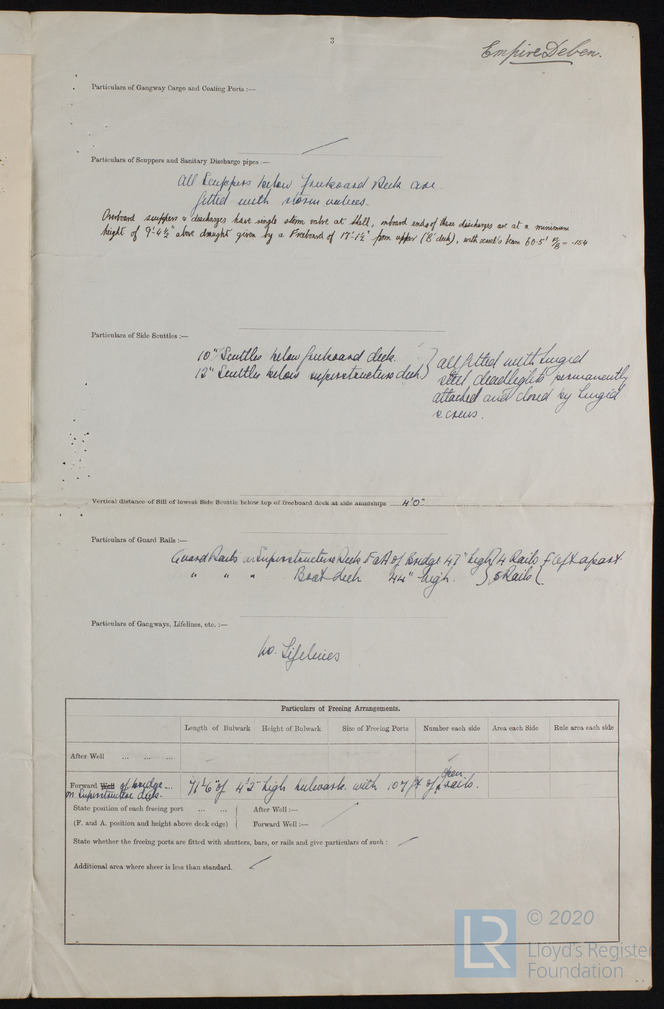 3
Empire Deben.
Particulars of Gangway Cargo and Coaling Ports :—
Particulars of Scuppers and Sanitary Discharge pipes :—
All Scuppers below freeboard deck are
fitted with storm valves.
Overboard scuppers & discharges have single storm valve at shell, inboard ends of these discharges are at a minimum
height of 9'-4½" above draught given by a Freeboard of 17'-1½" from upper ('B' deck), with vessel's beam 60.5' = .154
Particulars of Side Scuttles :—
10" Scuttles below freeboard deck.
12" Scuttles below superstructure deck
all fitted with hinged
steel deadlights permanently
attached and closed by hinged
screws.
Vertical distance of Sill of lowest Side Scuttle below top of freeboard deck at side amidships 4'0"
Particulars of Guard Rails :—
Guard Rails on Superstructure Deck F & A of Bridge 47" high 4 Rails 5 left apart
" " " Boat deck 44" high. 5 Rails
Particulars of Gangways, Lifelines, etc. :—
No. Lifelines
Particulars of Freeing Arrangements.
Length of Bulwark Height of Bulwark Size of Freeing Ports Number each side Area each Side Rule area each side
After Well ... ... ...
Forward Well of bridge ... 71'-6" of 4'2" high bulwark with 107 ft of open rails.
on superstructure deck.
State position of each freeing port ... ... After Well :—
(F. and A. position and height above deck edge) Forward Well :—
State whether the freeing ports are fitted with shutters, bars, or rails and give particulars of such :
Additional area where sheer is less than standard.
LR
© 2020
Lloyd's Register
Foundation